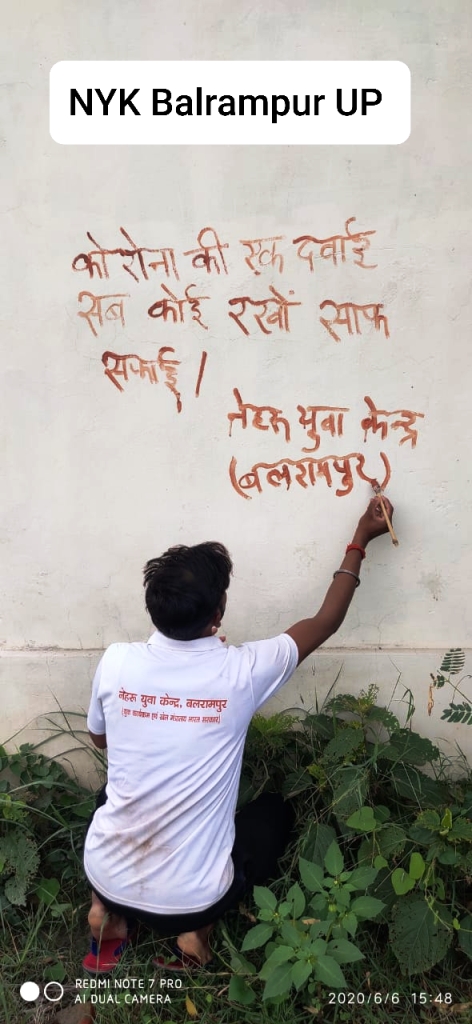 NYK Balrampur UP
कोरोना की एक दवाई
सब कोई रखों साफ
सफाई।
नेहरू युवा केन्द्र
(बलरामपुर)
नेहरू युवा केन्द्र, बलरामपुर
(युवा कार्यक्रम एवं खेल मंत्रालय भारत सरकार)
REDMI NOTE 7 PRO
AI DUAL CAMERA
2020/6/6 15:48